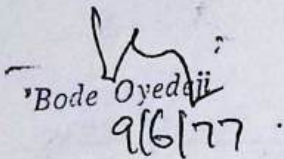 'Bode Oyedeji
9/6/77